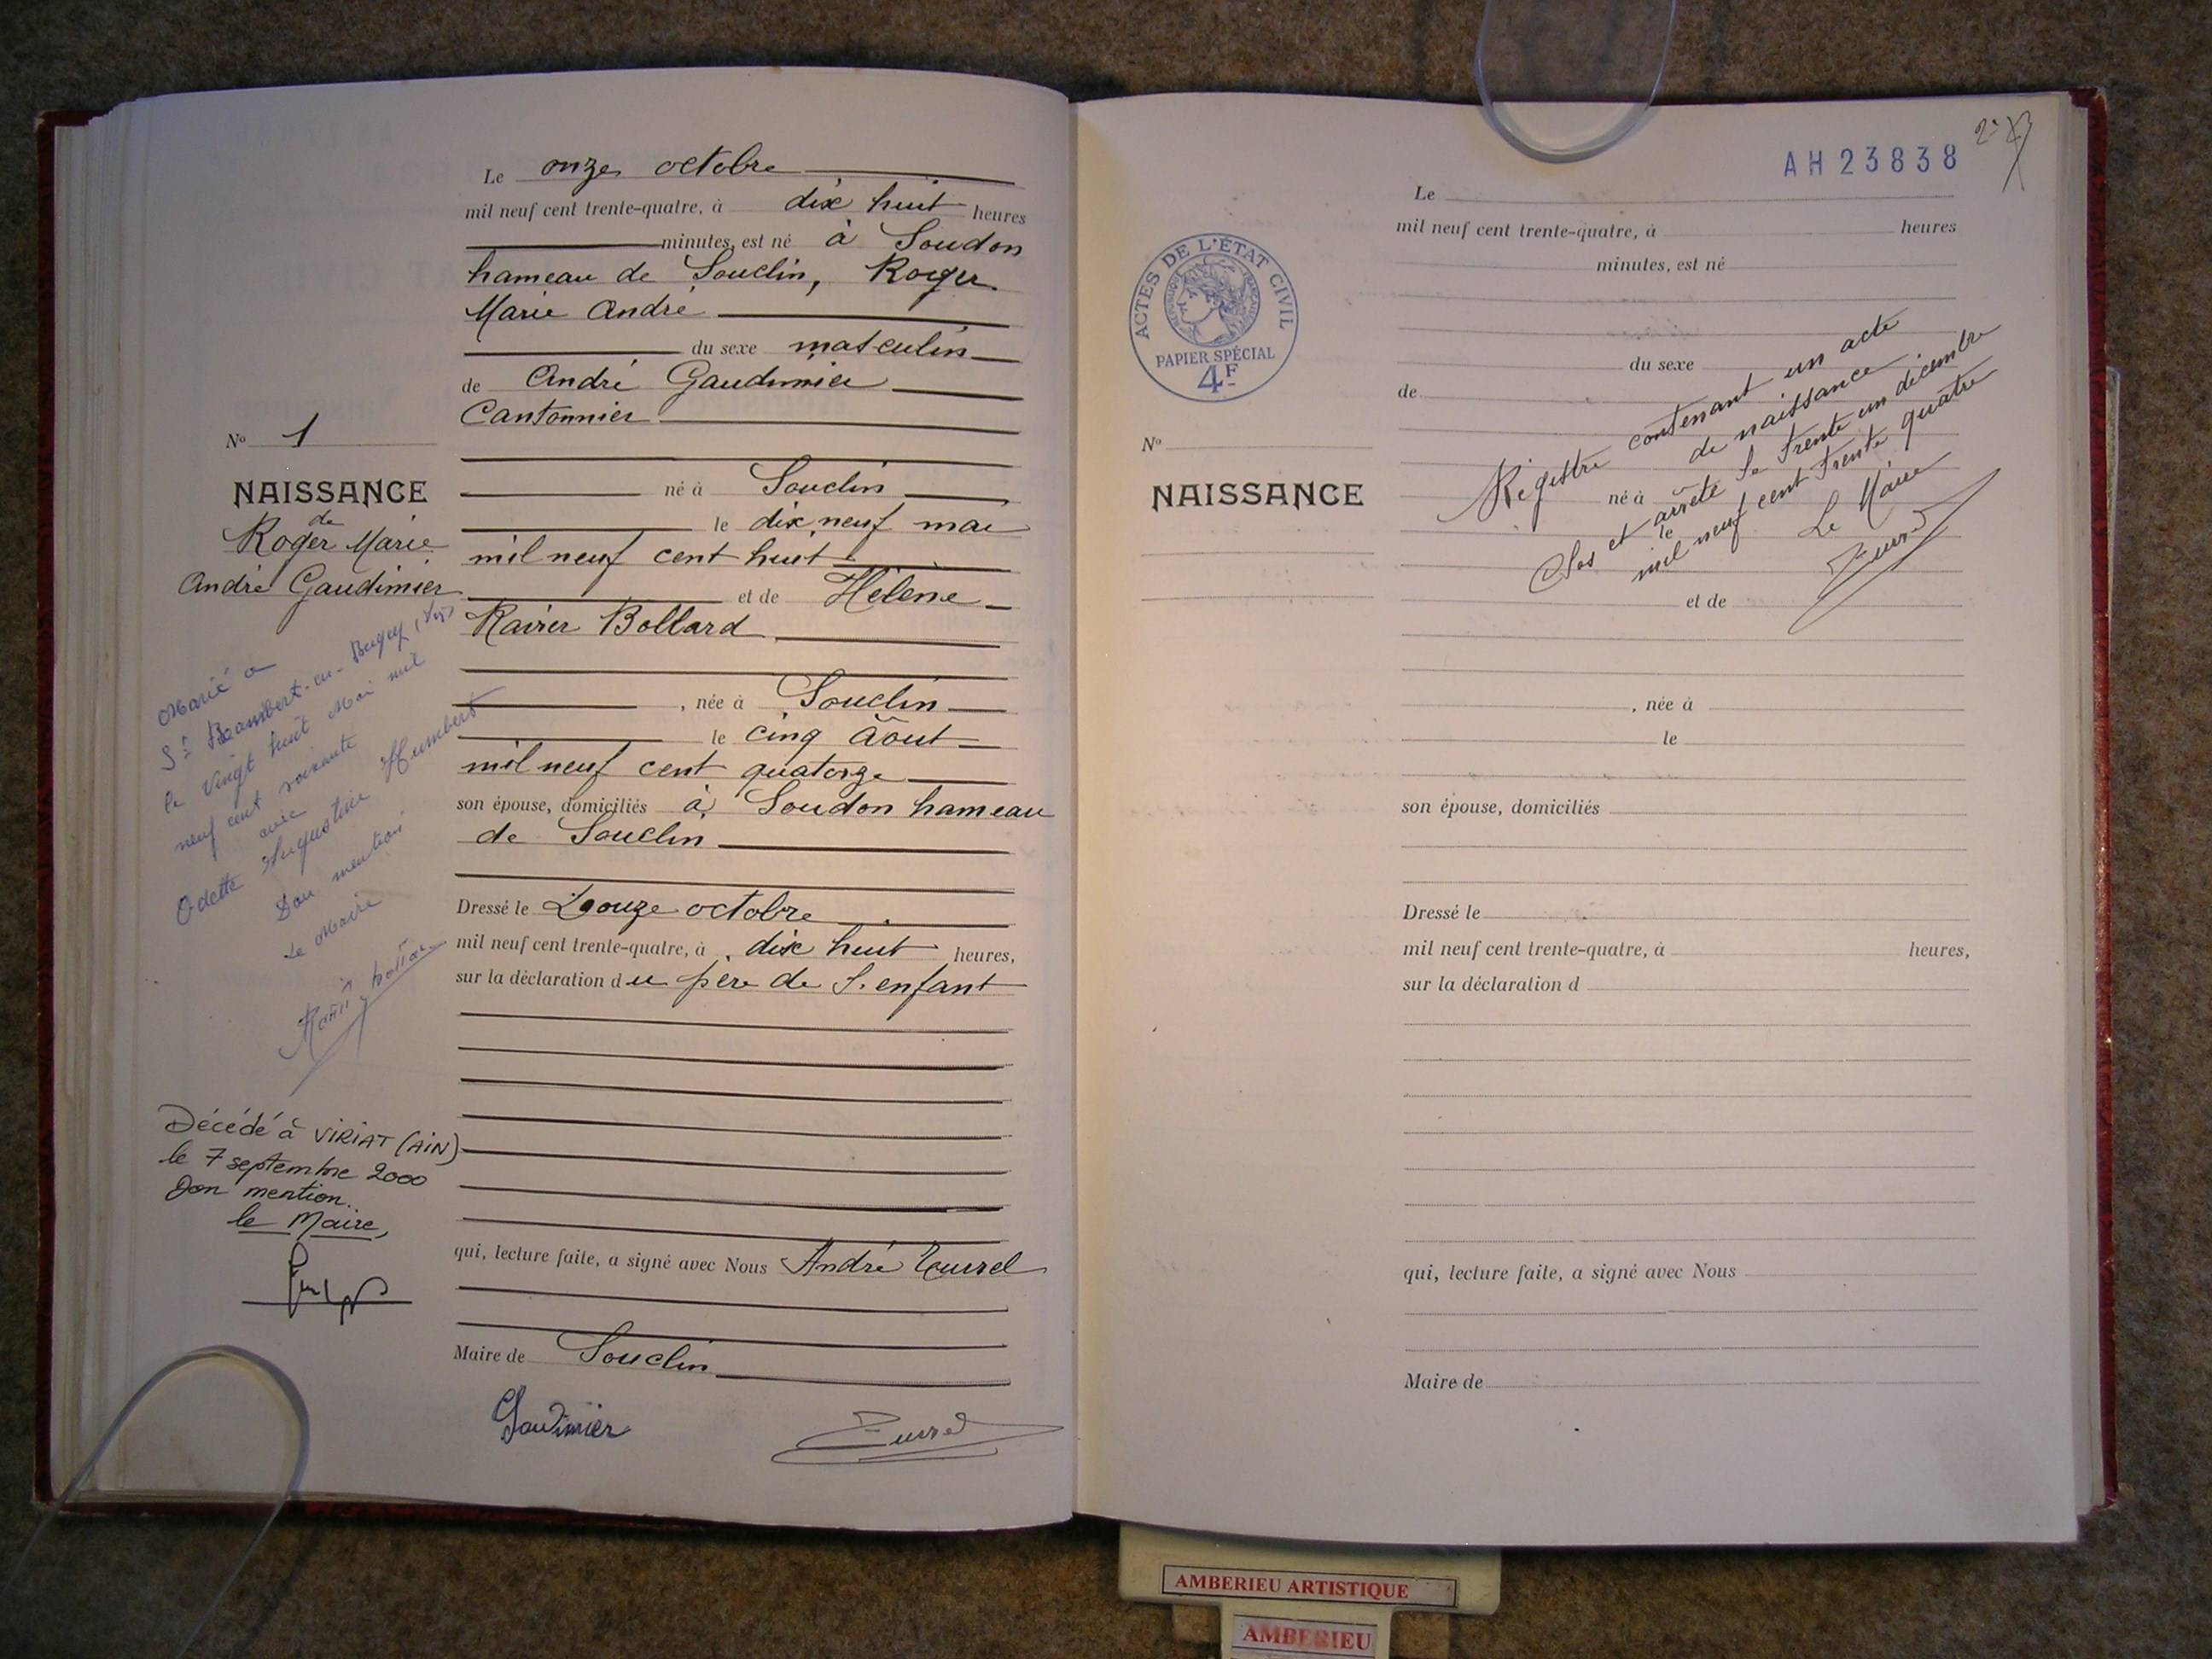 Le onze octobre
mil neuf cent trente-quatre, à dix huit heures
minutes, est né à Soudon
hameau de Souclin, Roger
Marie André
du sexe masculin
de André Gaudimier
Cantonnier
né à Souclin
le dix neuf mai
mil neuf cent huit
et de Hélène
Rairier Bollard
, née à Souclin
le cinq Août
mil neuf cent quatorze
son épouse, domiciliés à Soudon hameau
de Souclin
Dressé le Douze octobre
mil neuf cent trente-quatre, à dix huit heures,
sur la déclaration du père de l'enfant
qui, lecture faite, a signé avec Nous André Tournel
Maire de Souclin
Gaudimier
No 1
NAISSANCE
de
Roger Marie
André Gaudimier
Marié à
St Rambert-en-Bugey
le vingt huit Mai mil
neuf cent soixante
avec
Odette Augustine Humbert
Don mention
Le Maire
Décédé à VIRIAT (AIN)
le 7 septembre 2000
Don mention.
le Maire,
AH 23838
2
ACTES DE L'ÉTAT CIVIL
RÉPUBLIQUE FRANÇAISE
PAPIER SPÉCIAL
4F
No
NAISSANCE
Le
mil neuf cent trente-quatre, à heures
minutes, est né
du sexe
de
né à
le
et de
, née à
le
son épouse, domiciliés
Dressé le
mil neuf cent trente-quatre, à heures,
sur la déclaration d
qui, lecture faite, a signé avec Nous
Maire de
Registre contenant un acte
de naissance
Clos et arrêté le trente un décembre
mil neuf cent trente quatre
Le Maire
AMBERIEU ARTISTIQUE
AMBERIEU